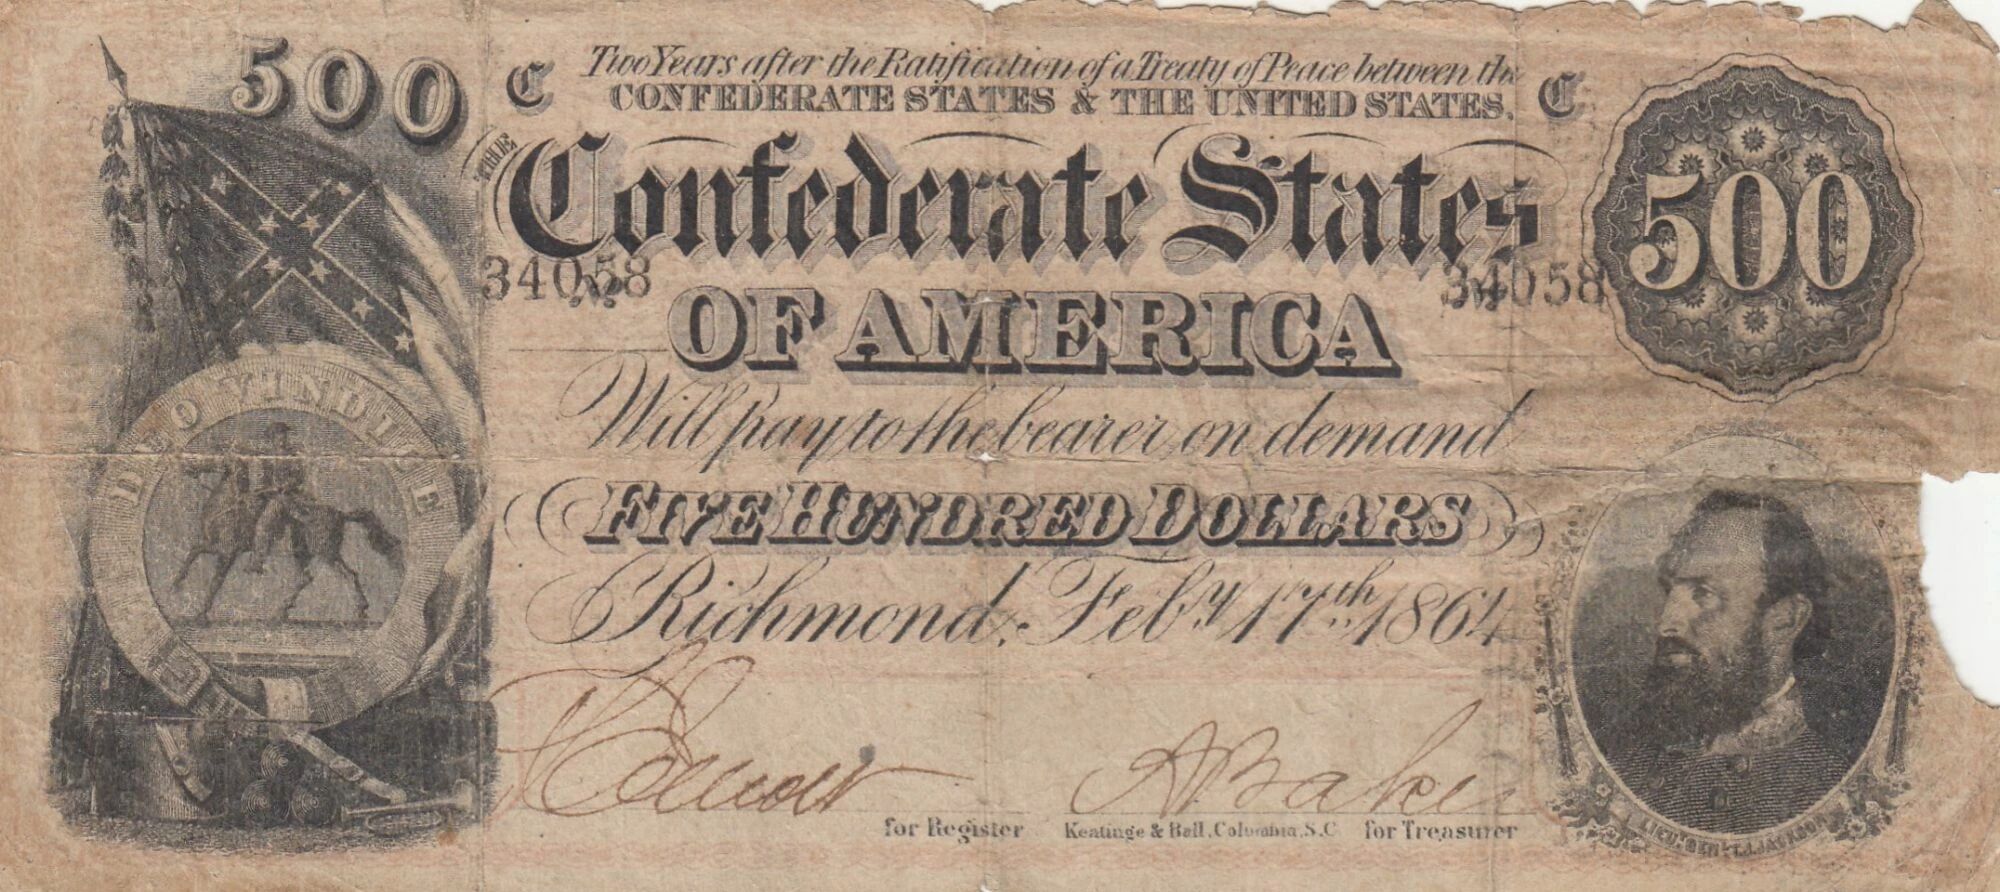 500
C
Two Years after the Ratification of a Treaty of Peace between the
C
CONFEDERATE STATES & THE UNITED STATES.
500
THE
Confederate States
34058
No.
34058
No.
OF AMERICA
Will pay to the bearer on demand
DEO VINDICE
FIVE HUNDRED DOLLARS
Richmond, Feb.y 17th 1864
A Baker
for Register
Keatinge & Ball, Columbia, S.C.
for Treasurer
LIEUT. GEN'L T.J. JACKSON